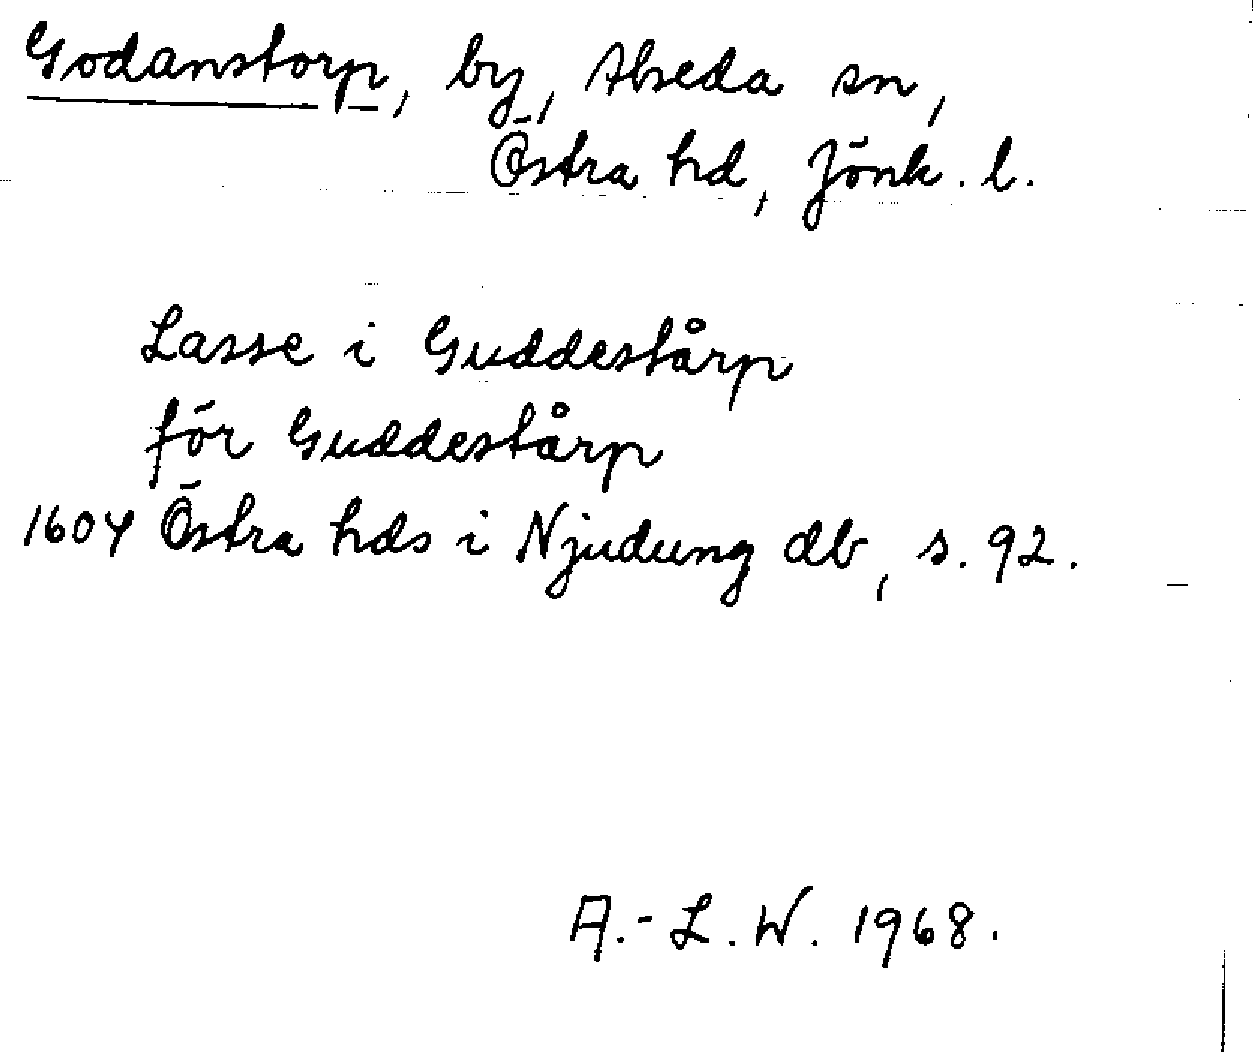 Godanstorp, by, Alseda sn,
Östra hd, Jönk. l.
Lasse i Guddestårp
för Guddestårp
1604 Östra hds i Njudung db, s. 92.
A.-L. W. 1968.